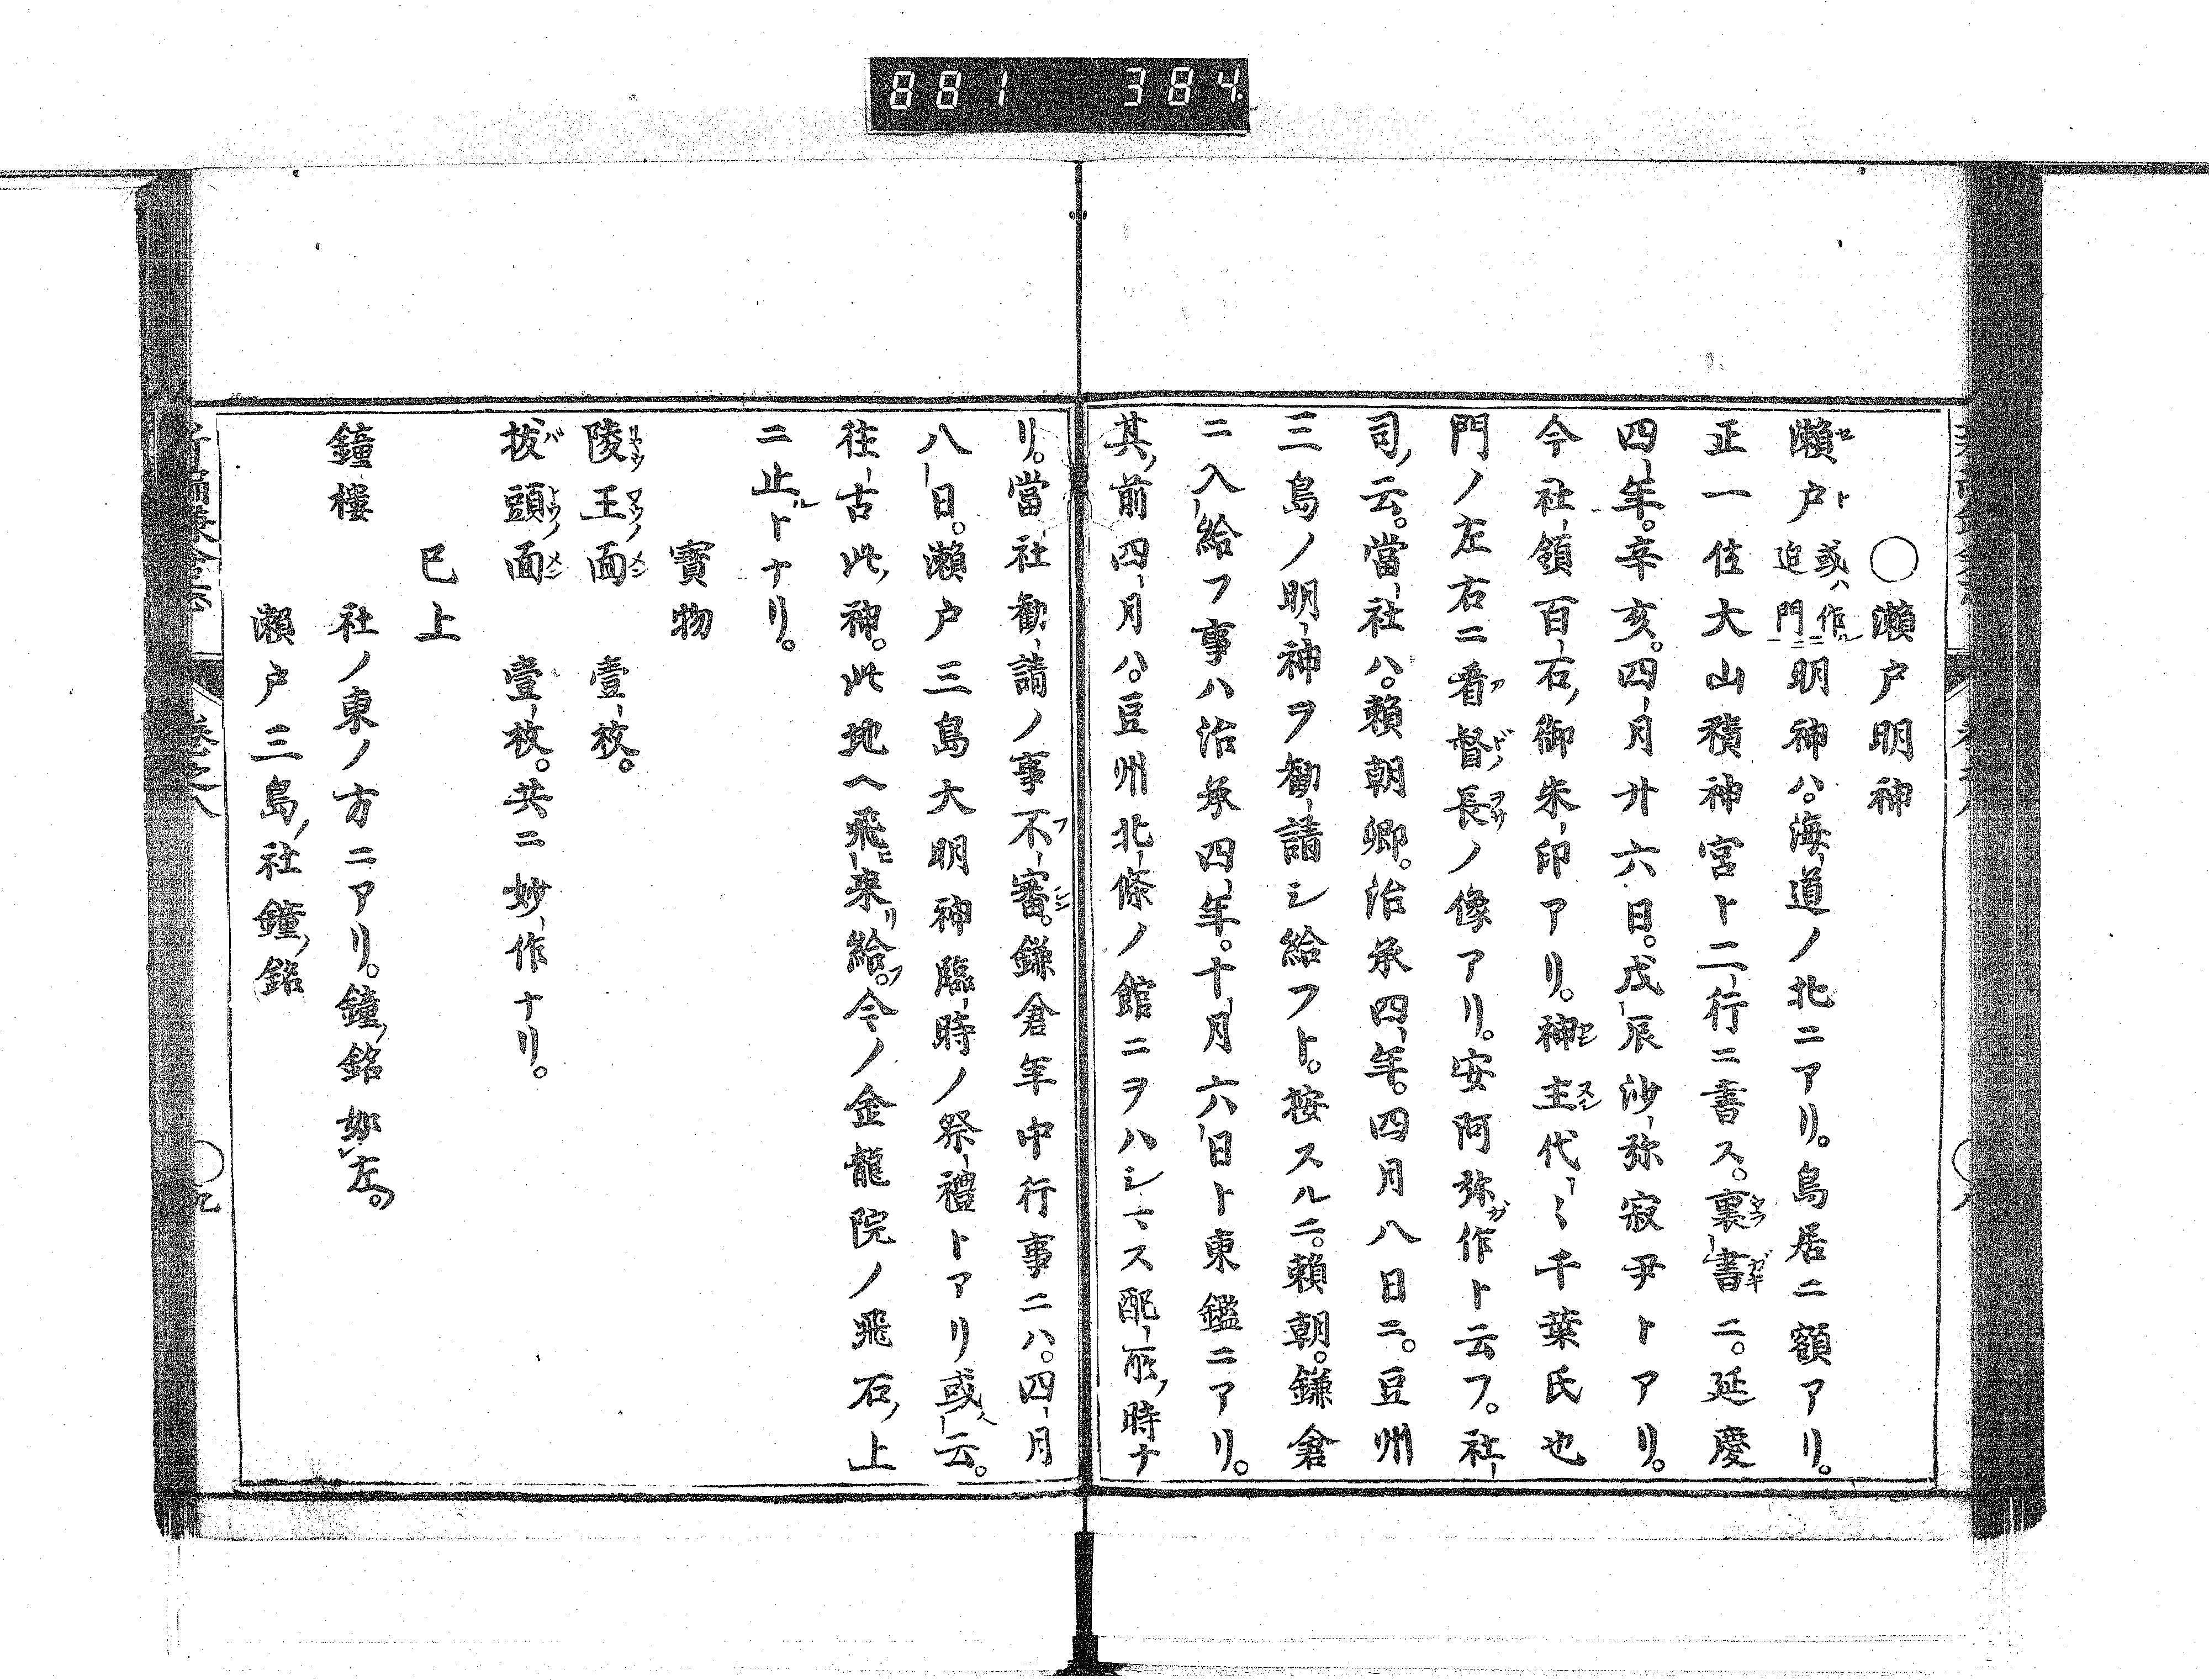 881 384
○瀬戸明神
瀬戸或ハ作迫門ニ明神ハ。海道ノ北ニアリ。鳥居ニ額アリ。
正一位大山積神宮ト二行ニ書ス。裏書ニ。延慶
四年。辛亥。四月廿六日。戊辰沙弥寂尹トアリ。
今社領百石ノ御朱印アリ。神主代〻千葉氏也
門ノ左右ニ看督長ノ像アリ。安阿弥ガ作ト云フ。社
司ノ云。當社ハ。頼朝卿。治承四年。四月八日ニ。豆州
三島ノ明神ヲ勧請シ給フト。按スルニ。頼朝。鎌倉
ニ入給フ事ハ治承四年。十月六日ト東鑑ニアリ。
其ノ前四月ハ。豆州北條ノ館ニヲハシマス配所ノ時ナ
リ。當社勧請ノ事不審。鎌倉年中行事ニハ。四月
八日。瀬戸三島大明神臨時ノ祭禮トアリ或云。
往古此ノ神。此地ヘ飛来リ給フ。今ノ金龍院ノ飛石ノ上
ニ止ルトナリ。
寶物
陵王面 壹枚。
抜頭面 壹枚。共ニ妙作ナリ。
已上
鐘樓 社ノ東ノ方ニアリ。鐘ノ銘如左。
瀬戸三島ノ社鐘ノ銘
巻之八
九